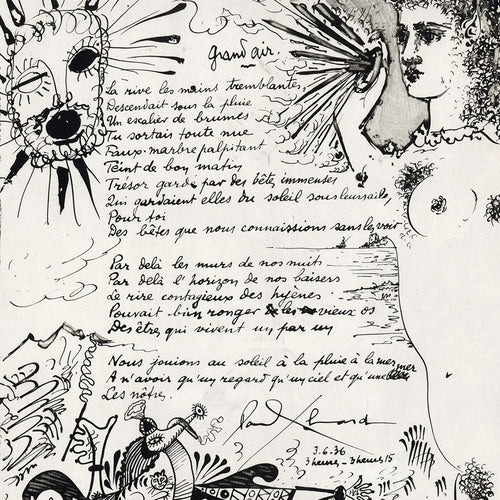 grand air
La rive les mains tremblantes,
Descendait sous la pluie
Un escalier de brumes
Tu sortais toute nue
Faux marbre palpitant
Teint de bon matin
Trésor gardé par des bêtes immenses
Qui gardaient elles du soleil sous leurs ailes,
Pour toi
Des bêtes que nous connaissions sans les voir
Par delà les murs de nos nuits
Par delà l'horizon de nos baisers
Le rire contagieux des hyènes
Pouvait bien ronger les vieux os
Des êtres qui vivent un par un
Nous jouions au soleil à la pluie à la mer
A n'avoir qu'un regard qu'un ciel et qu'une mer
Les nôtres.
Paul Eluard
3.6.36
3 heures - 3 heures 15